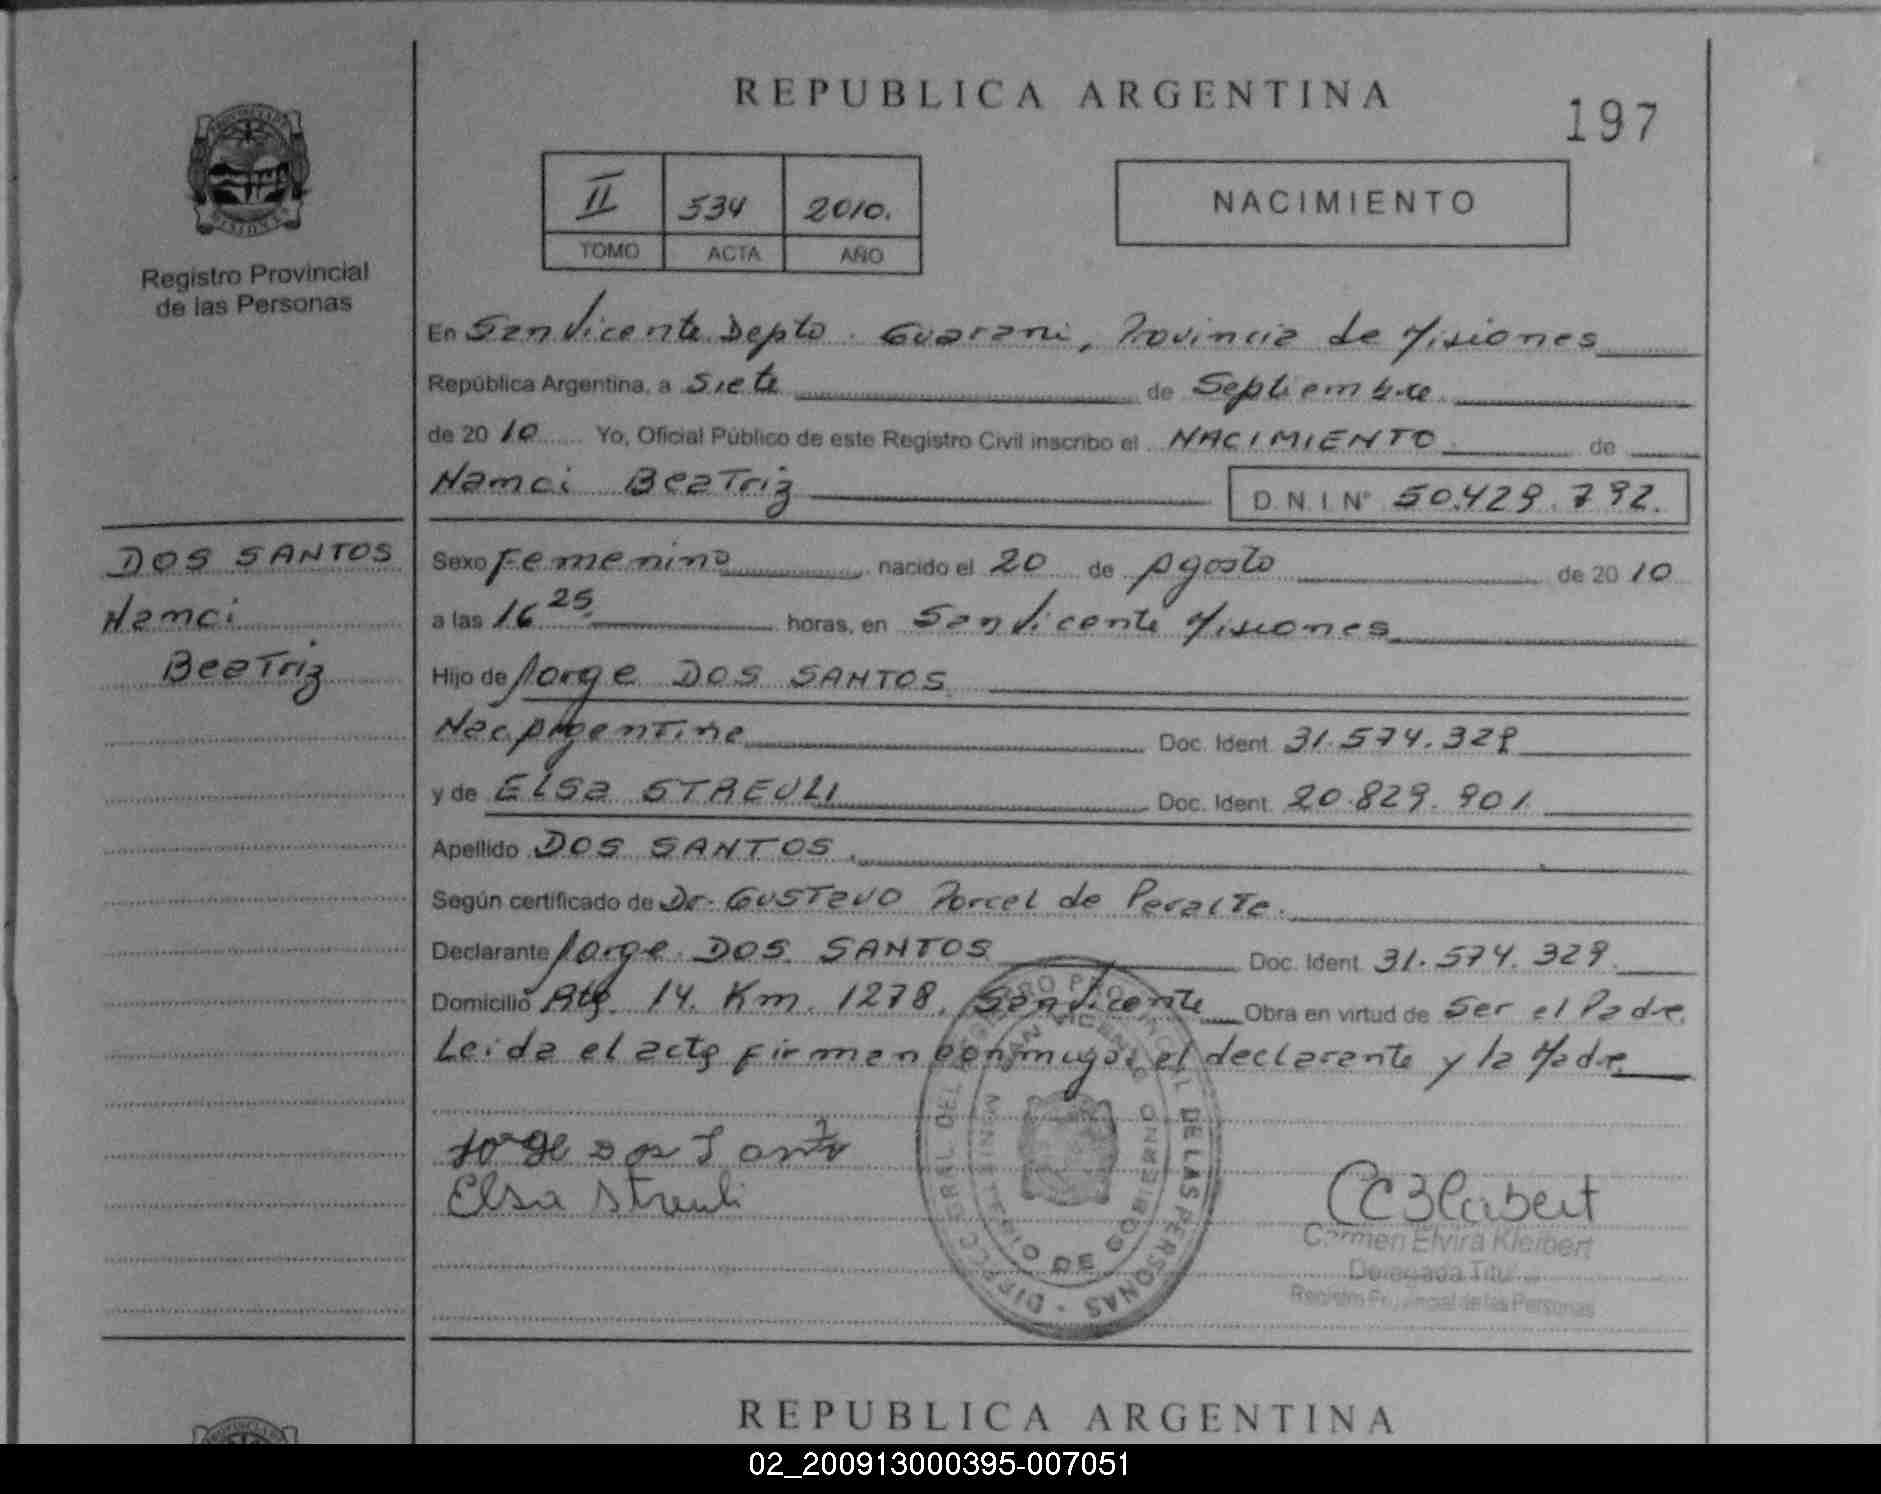 REPUBLICA ARGENTINA
197
II 534 2010.
TOMO ACTA AÑO
NACIMIENTO
Registro Provincial
de las Personas
En San Vicente Depto. Guarani, Provincia de Misiones
República Argentina, a Siete de Septiembre
de 20 10 Yo, Oficial Público de este Registro Civil inscribo el NACIMIENTO de
Namci Beatriz D.N.I. N° 50.429.792.
DOS SANTOS
Namci
Beatriz
Sexo Femenino nacido el 20 de Agosto de 20 10
a las 16 25 horas, en San Vicente Misiones
Hijo de Jorge DOS SANTOS
Nac. Argentina Doc. Ident. 31.574.329
y de Elsa STREULI Doc. Ident. 20.829.901.
Apellido DOS SANTOS.
Según certificado de Dr. Gustavo Porcel de Peralta.
Declarante Jorge DOS SANTOS Doc. Ident. 31.574.329.
Domicilio Rta. 14. Km. 1278. San Vicente Obra en virtud de Ser el Padre.
Leida el acta firman conmigo: el declarante y la Madre
Jorge Dos Santo
Elsa Streuli
DE LAS PERSONAS
SAN VICENTE
DE GOBIERNO
Carmen Elvira Kleibert
Registro Provincial de las Personas
REPUBLICA ARGENTINA
02_200913000395-007051